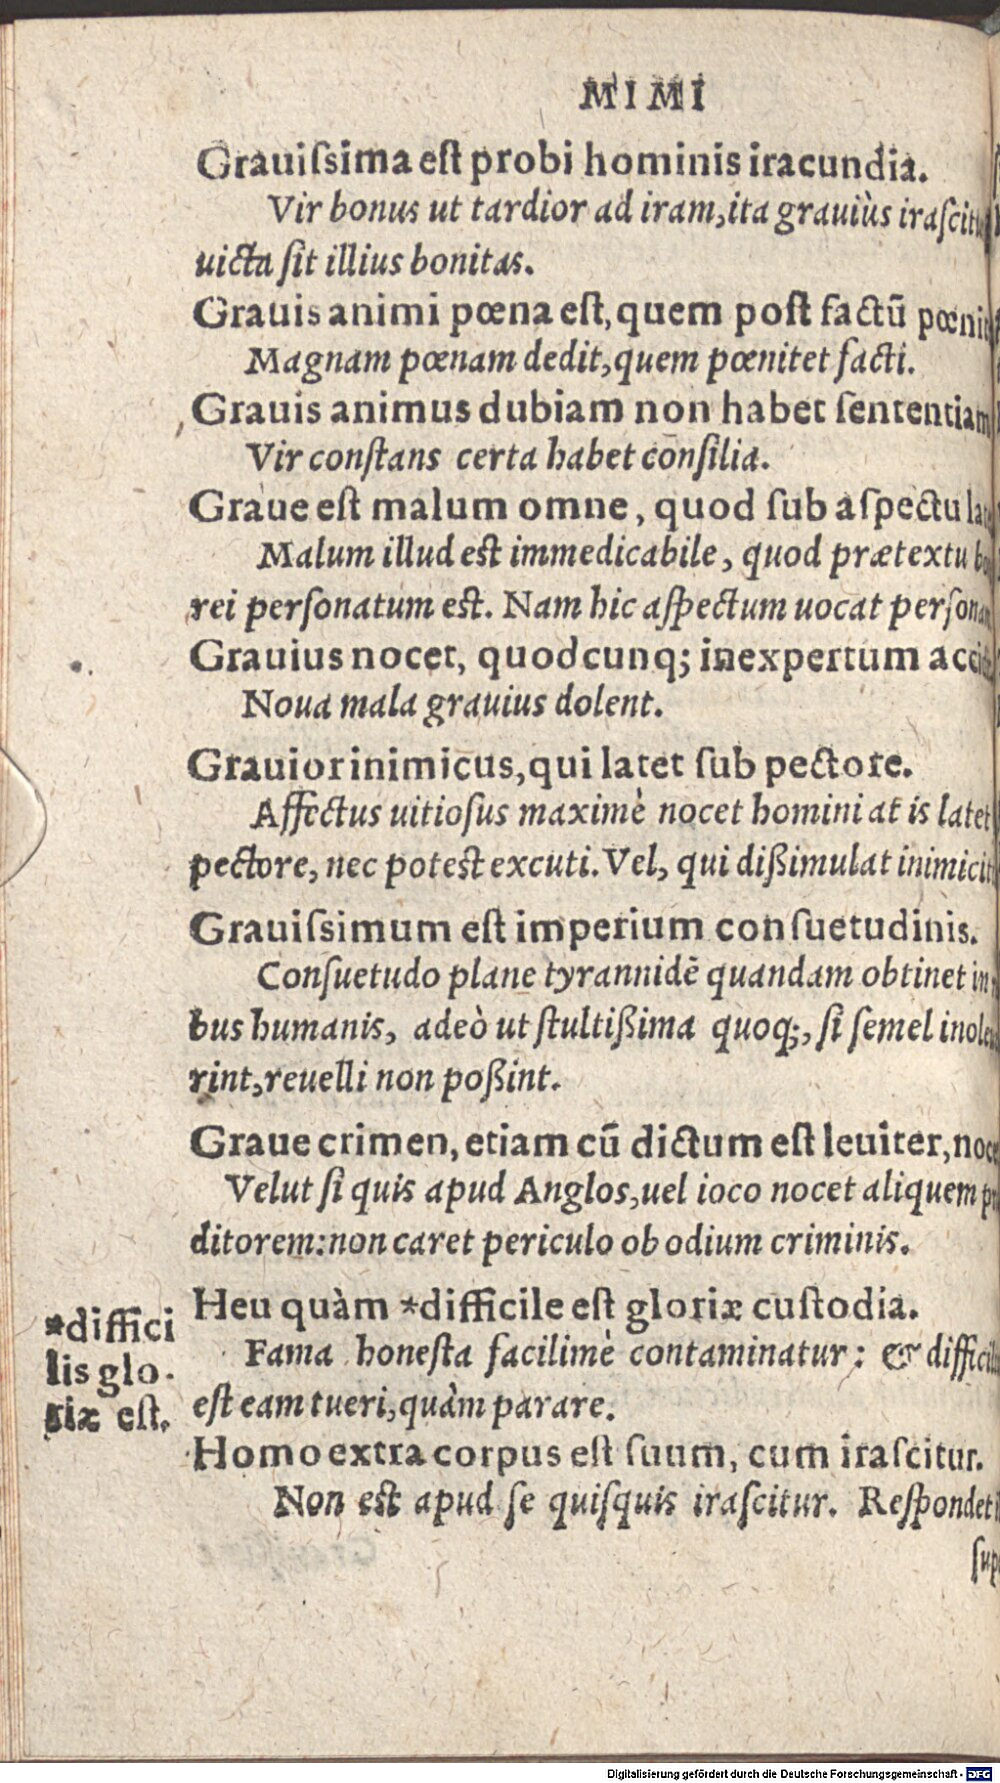 MIMI
Grauiſsima eſt probi hominis iracundia.
Vir bonus ut tardior ad iram, ita grauiùs iraſcit
uicta ſit illius bonitas.
Grauis animi pœna eſt, quem poſt factū pœni
Magnam pœnam dedit, quem pœnitet facti.
Grauis animus dubiam non habet ſententiam
Vir conſtans certa habet conſilia.
Graue eſt malum omne, quod ſub aſpectu la
Malum illud eſt immedicabile, quod prætextu
rei perſonatum eſt. Nam hic aſpectum uocat perſon
Grauius nocet, quodcunq; inexpertum acci
Noua mala grauius dolent.
Grauior inimicus, qui latet ſub pectore.
Affectus uitioſus maximè nocet homini at is latet
pectore, nec poteſt excuti. Vel, qui dißimulat inimicit
Grauiſsimum eſt imperium conſuetudinis.
Conſuetudo plane tyrannidē quandam obtinet in
bus humanis, adeò ut ſtultißima quoq;, ſi ſemel inole
rint, reuelli non poßint.
Graue crimen, etiam cū dictum eſt leuiter, noce
Velut ſi quis apud Anglos, uel ioco nocet aliquem p
ditorem: non caret periculo ob odium criminis.
Heu quàm *difficile eſt gloriæ cuſtodia.
*diffici
lis glo-
riæ eſt.
Fama honeſta facilimè contaminatur: & diffici
eſt eam tueri, quàm parare.
Homo extra corpus eſt ſuum, cum iraſcitur.
Non eſt apud ſe quiſquis iraſcitur. Reſpondet
ſup
Digitalisierung gefördert durch die Deutsche Forschungsgemeinschaft - DFG